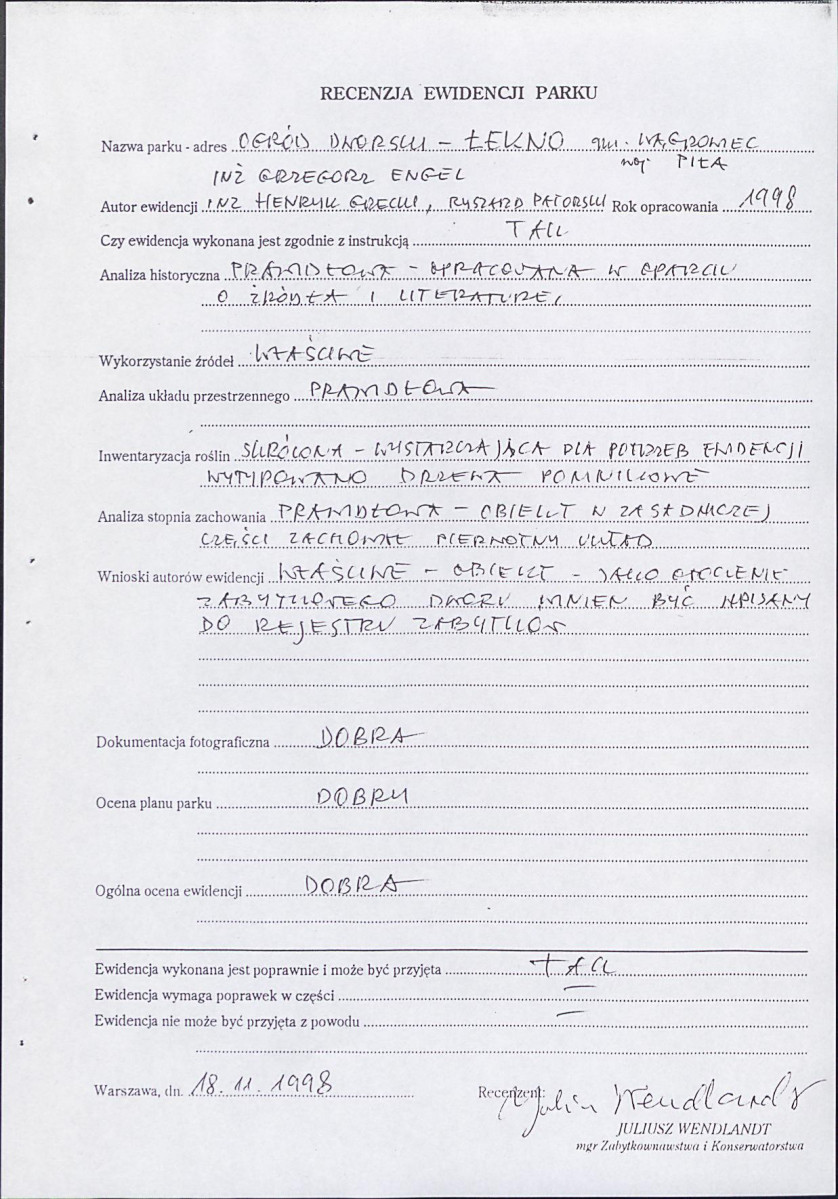 RECENZJA EWIDENCJI PARKU
Nazwa parku - adres OGRÓD DWORSKI - ŁEKNO gm. WĄGROWIEC
woj. PIŁA
INŻ GRZEGORZ ENGEL
Autor ewidencji INŻ HENRYK GRECKI, RYSZARD PATORSKI Rok opracowania 1998
Czy ewidencja wykonana jest zgodnie z instrukcją TAK
Analiza historyczna PRAWIDŁOWA - OPRACOWANA W OPARCIU
O ŹRÓDŁA I LITERATURĘ,
Wykorzystanie źródeł WŁAŚCIWE
Analiza układu przestrzennego PRAWIDŁOWA
Inwentaryzacja roślin SKRÓCONA - WYSTARCZAJĄCA DLA POTRZEB EWIDENCJI
WYTYPOWANO DRZEWA POMNIKOWE
Analiza stopnia zachowania PRAWIDŁOWA - OBIEKT W ZASADNICZEJ
CZĘŚCI ZACHOWAŁ PIERWOTNY UKŁAD
Wnioski autorów ewidencji WŁAŚCIWE - OBIEKT - JAKO OTOCZENIE
ZABYTKOWEGO DWORU WINIEN BYĆ WPISANY
DO REJESTRU ZABYTKÓW
Dokumentacja fotograficzna DOBRA
Ocena planu parku DOBRY
Ogólna ocena ewidencji DOBRA
Ewidencja wykonana jest poprawnie i może być przyjęta TAK
Ewidencja wymaga poprawek w części —
Ewidencja nie może być przyjęta z powodu —
Warszawa, dn. 18.11.1998 Recenzent: Juliusz Wendlandt
JULIUSZ WENDLANDT
mgr Zabytkownawstwa i Konserwatorstwa